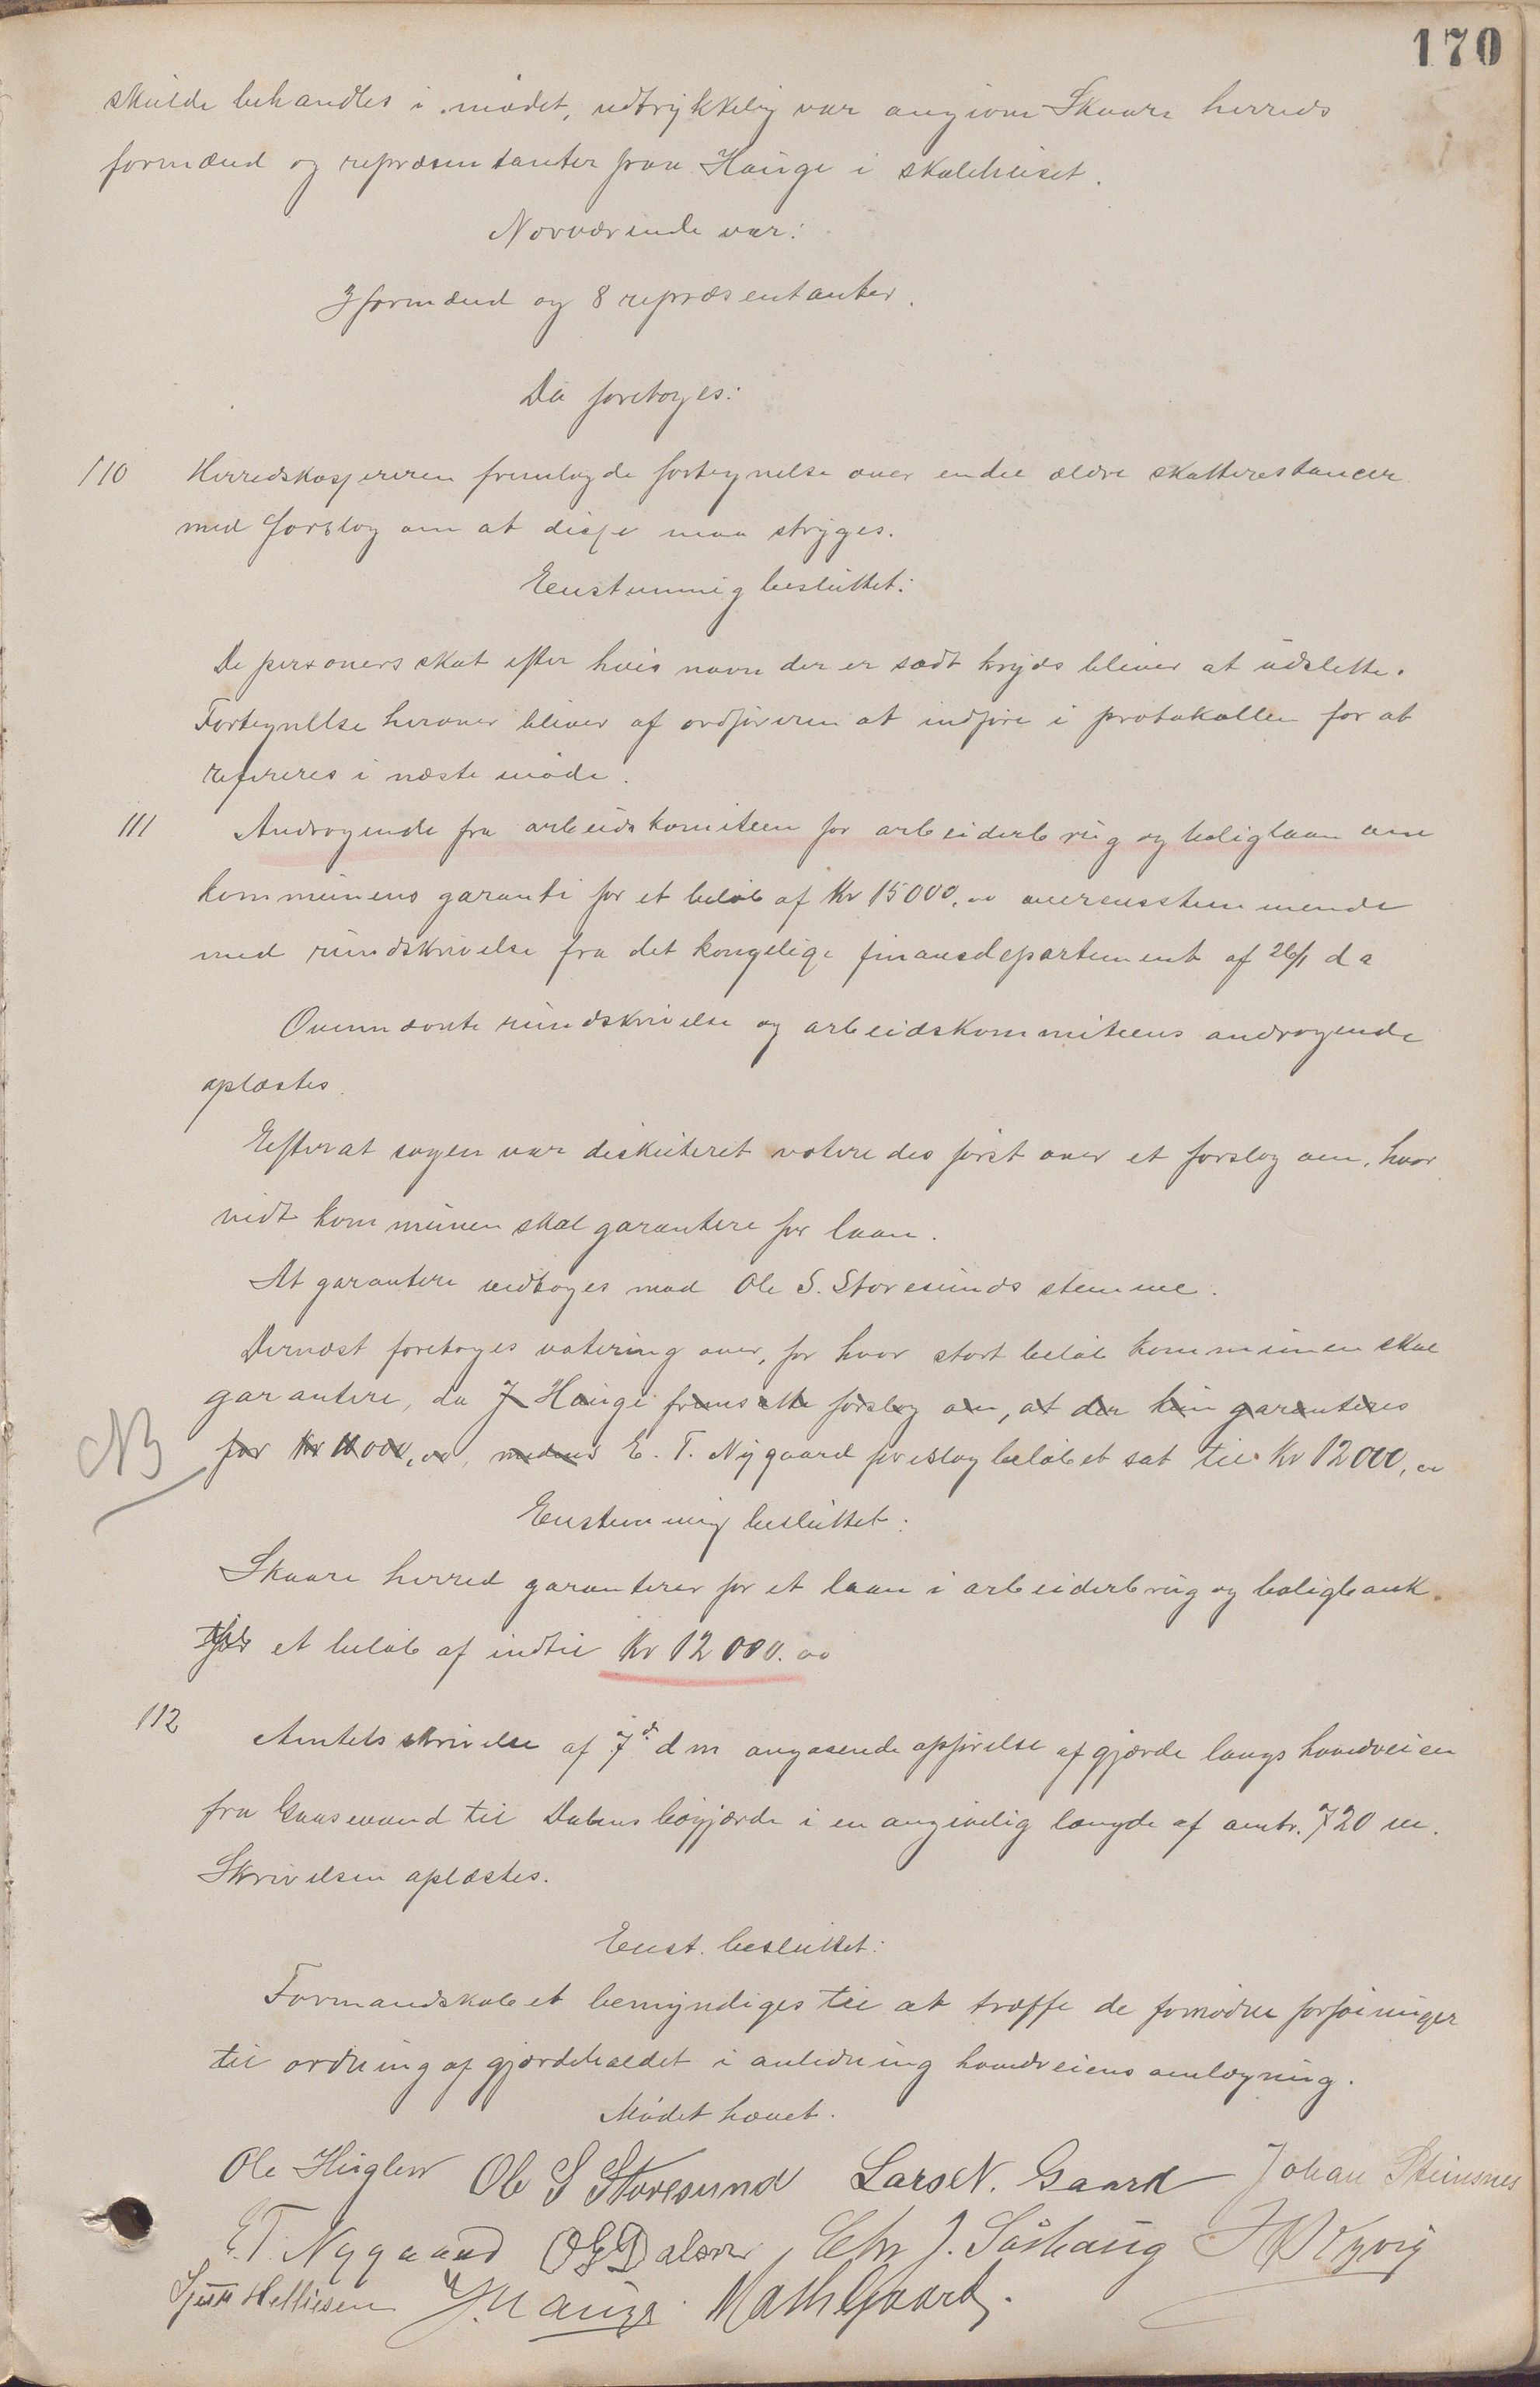 170
skulde behandles i mødet, udtrykkelig var angiven Skaare herreds
formænd og repræsentanter paa Hauge i skolehuset.
Nærværende var:
3 formænd og 8 repræsentanter.
Da foretoges:
110 Herredskasjereren fremlagde fortegnelse over endel ældre skatterestancer
med forslag om at disse maa stryges.
Eenstemmig besluttet:
De personers skat efter hvis navn der er sadt kryds bliver at udslette.
Fortegnelse herover bliver af ordføreren at indføre i protokollen for at
refereres i næste møde.
111 Andragende fra arbeidskomiteen for arbeiderbrug og boliglaan om
kommunens garanti for et beløb af Kr 15000,00 overensstemmende
med rundskrivelse fra det kongelige finansdepartement af 26/1 d a
Ovennævnte rundskrivelse og arbeidskommiteens andragende
oplæstes.
Efterat sagen var diskuteret voteredes først over et forslag om, hvor
vidt kommunen skal garantere for laan.
At garantere vedtoges mod Ole S. Storesunds stemme.
Dernæst foretoges votering over, for hvor stort beløb kommunen skal
garantere, da J Hauge fremsatte forslag om, at der kun garanteres
NB for Kr 11000,00, medens E. T. Nygaard foreslog beløbet sat til Kr 12000,00
Eenstemmig besluttet:
Skaare herred garanterer for et laan i arbeiderbrug og boligbank
for et beløb af indtil Kr 12000.00
112 Amtets skrivelse af 7de d m angaaende opførelse af gjærde langs hovedveien
fra Gaasevand til Dalens bøgjærde i en angivelig længde af omtr. 720 m.
Skrivelsen oplæstes.
Eenst. besluttet:
Formandskabet bemyndiges til at træffe de fornødne forføininger
til ordning af gjærdeholdet i anledning hovedveiens omlægning.
Mødet hævet.
Ole Ole S Storesund Lars N. Gaard Johan Steinsnes
E. T. Nygaard Chr J. Sørhaug
Helliesen J. Hauge Math Gaard.